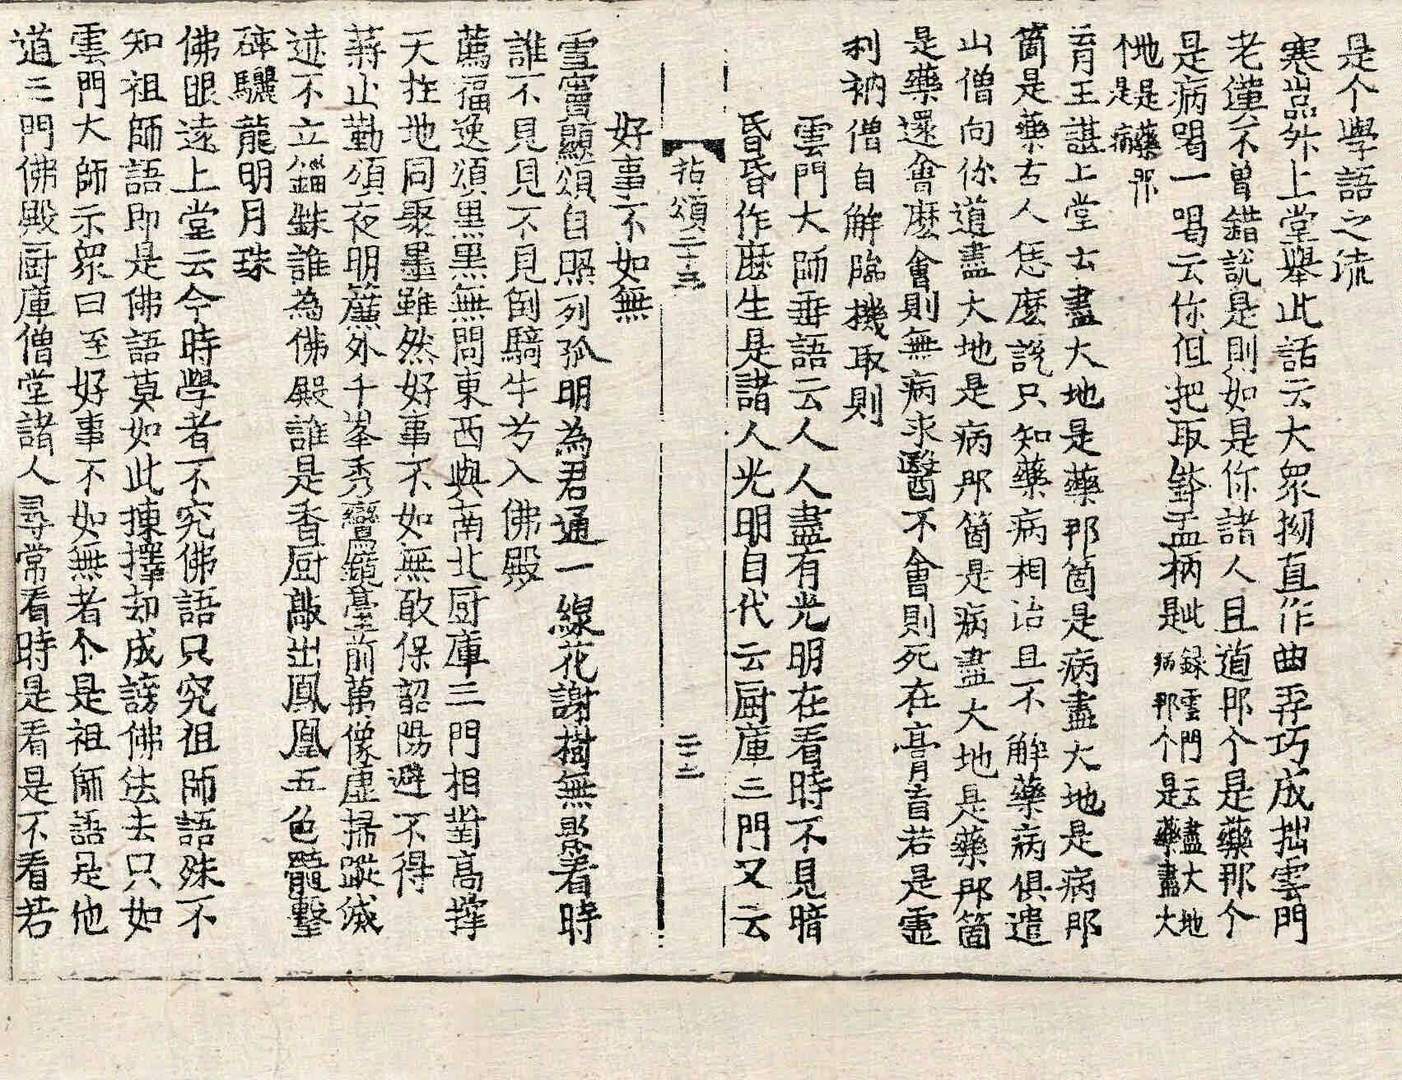 是个學語之流
寒嵓外上堂舉此話云大眾拗直作曲弄巧成拙雲門
老漢不曾錯說是則如是你諸人且道那个是藥那个
是病喝一喝云你但把取鉢盂柄是此錄雲門云盡大地病那个是藥盡大
地是藥那个是病
育王諶上堂云盡大地是藥那箇是病盡大地是病那
箇是藥古人恁麽說只知藥病相治且不解藥病俱遣
山僧向你道盡大地是病那箇是病盡大地是藥那箇
是藥還會麽會則無病求醫不會則死在膏肓若是靈
利衲僧自解臨機取則
雲門大師垂語云人人盡有光明在看時不見暗
昏昏作麽生是諸人光明自代云厨庫三門又云
拈頌二十三
二十二
好事不如無
雪竇顯頌自照列孤明為君通一線花謝樹無影看時
誰不見見不見倒騎牛兮入佛殿
薦福逸頌黑黑無問東西與南北厨庫三門相對高撑
天拄地同聚墨雖然好事不如無敢保韶陽避不得
蔣山勤頌夜明簾外千峯秀鸞鏡臺前萬像虛掃蹤滅
迹不立錙銖誰為佛殿誰是香厨敲出鳳凰五色髓擊
碎驪龍明月珠
佛眼遠上堂云今時學者不究佛語只究祖師語殊不
知祖師語即是佛語莫如此揀擇却成謗佛法去只如
雲門大師示眾曰至好事不如無者个是祖師語是他
道三門佛殿厨庫僧堂諸人尋常看時是看是不看若